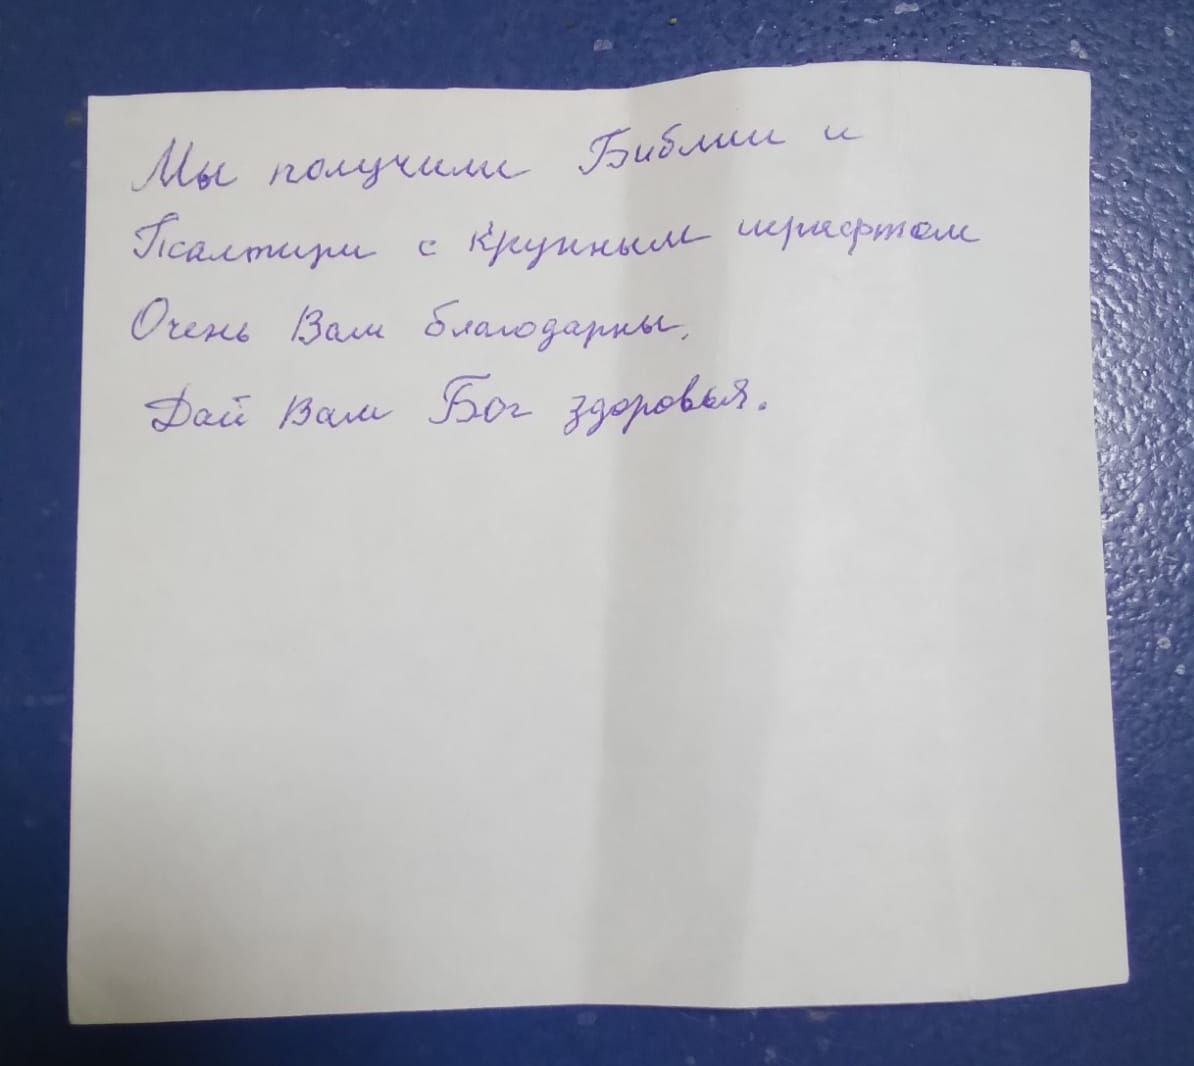 Мы получили Библии и
Псалтири с крупным шрифтом
Очень Вам благодарны.
Дай Вам Бог здоровья.